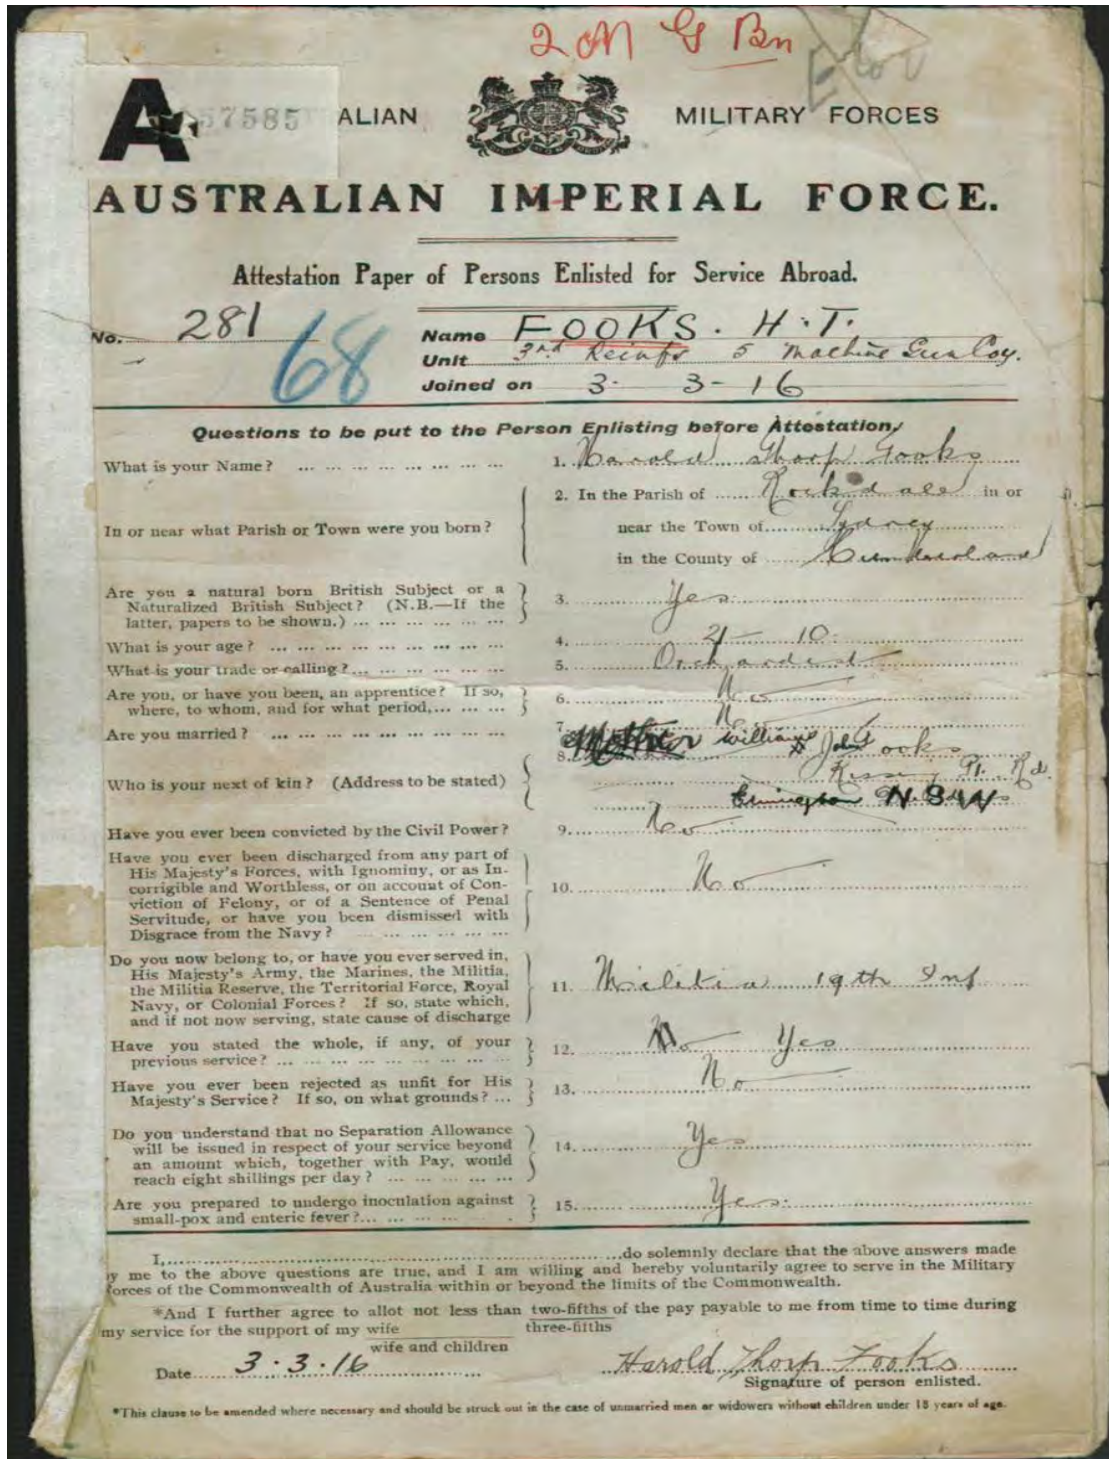 2 M G Bn
A 57585 ALIAN MILITARY FORCES
AUSTRALIAN IMPERIAL FORCE.
Attestation Paper of Persons Enlisted for Service Abroad.
No. 281 68 Name FOOKS. H.T.
Unit 3rd Reinfs 5 Machine Gun Coy.
Joined on 3. 3-16
Questions to be put to the Person Enlisting before Attestation
What is your Name? ... 1. Harold Thorp Fooks
In or near what Parish or Town were you born? 2. In the Parish of ...... Rockdale in or
near the Town of ...... Sydney
in the County of ...... Cumberland
Are you a natural born British Subject or a
Naturalized British Subject? (N.B.—If the
latter, papers to be shown.) ... 3. Yes.
What is your age? ... 4. 21-10
What is your trade or calling? ... 5. Orchardist
Are you, or have you been, an apprentice? If so,
where, to whom, and for what period, ... 6. No
Are you married? ... 7. No
Who is your next of kin? (Address to be stated) 8. Mother William John Fooks
Kissing Pt. Rd.
Ermington N S W
Have you ever been convicted by the Civil Power? 9. No
Have you ever been discharged from any part of
His Majesty's Forces, with Ignominy, or as In-
corrigible and Worthless, or on account of Con-
viction of Felony, or of a Sentence of Penal
Servitude, or have you been dismissed with
Disgrace from the Navy? ... 10. No
Do you now belong to, or have you ever served in,
His Majesty's Army, the Marines, the Militia,
the Militia Reserve, the Territorial Force, Royal
Navy, or Colonial Forces? If so, state which,
and if not now serving, state cause of discharge 11. Militia 19th Inf
Have you stated the whole, if any, of your
previous service? ... 12. No Yes
Have you ever been rejected as unfit for His
Majesty's Service? If so, on what grounds? ... 13. No
Do you understand that no Separation Allowance
will be issued in respect of your service beyond
an amount which, together with Pay, would
reach eight shillings per day? ... 14. Yes
Are you prepared to undergo inoculation against
small-pox and enteric fever? ... 15. Yes.
I, ...... do solemnly declare that the above answers made
y me to the above questions are true, and I am willing and hereby voluntarily agree to serve in the Military
forces of the Commonwealth of Australia within or beyond the limits of the Commonwealth.
*And I further agree to allot not less than two-fifths of the pay payable to me from time to time during
three-fifths
my service for the support of my wife
wife and children
Date 3.3.16 Harold Thorp Fooks
Signature of person enlisted.
*This clause to be amended where necessary and should be struck out in the case of unmarried men or widowers without children under 18 years of age.